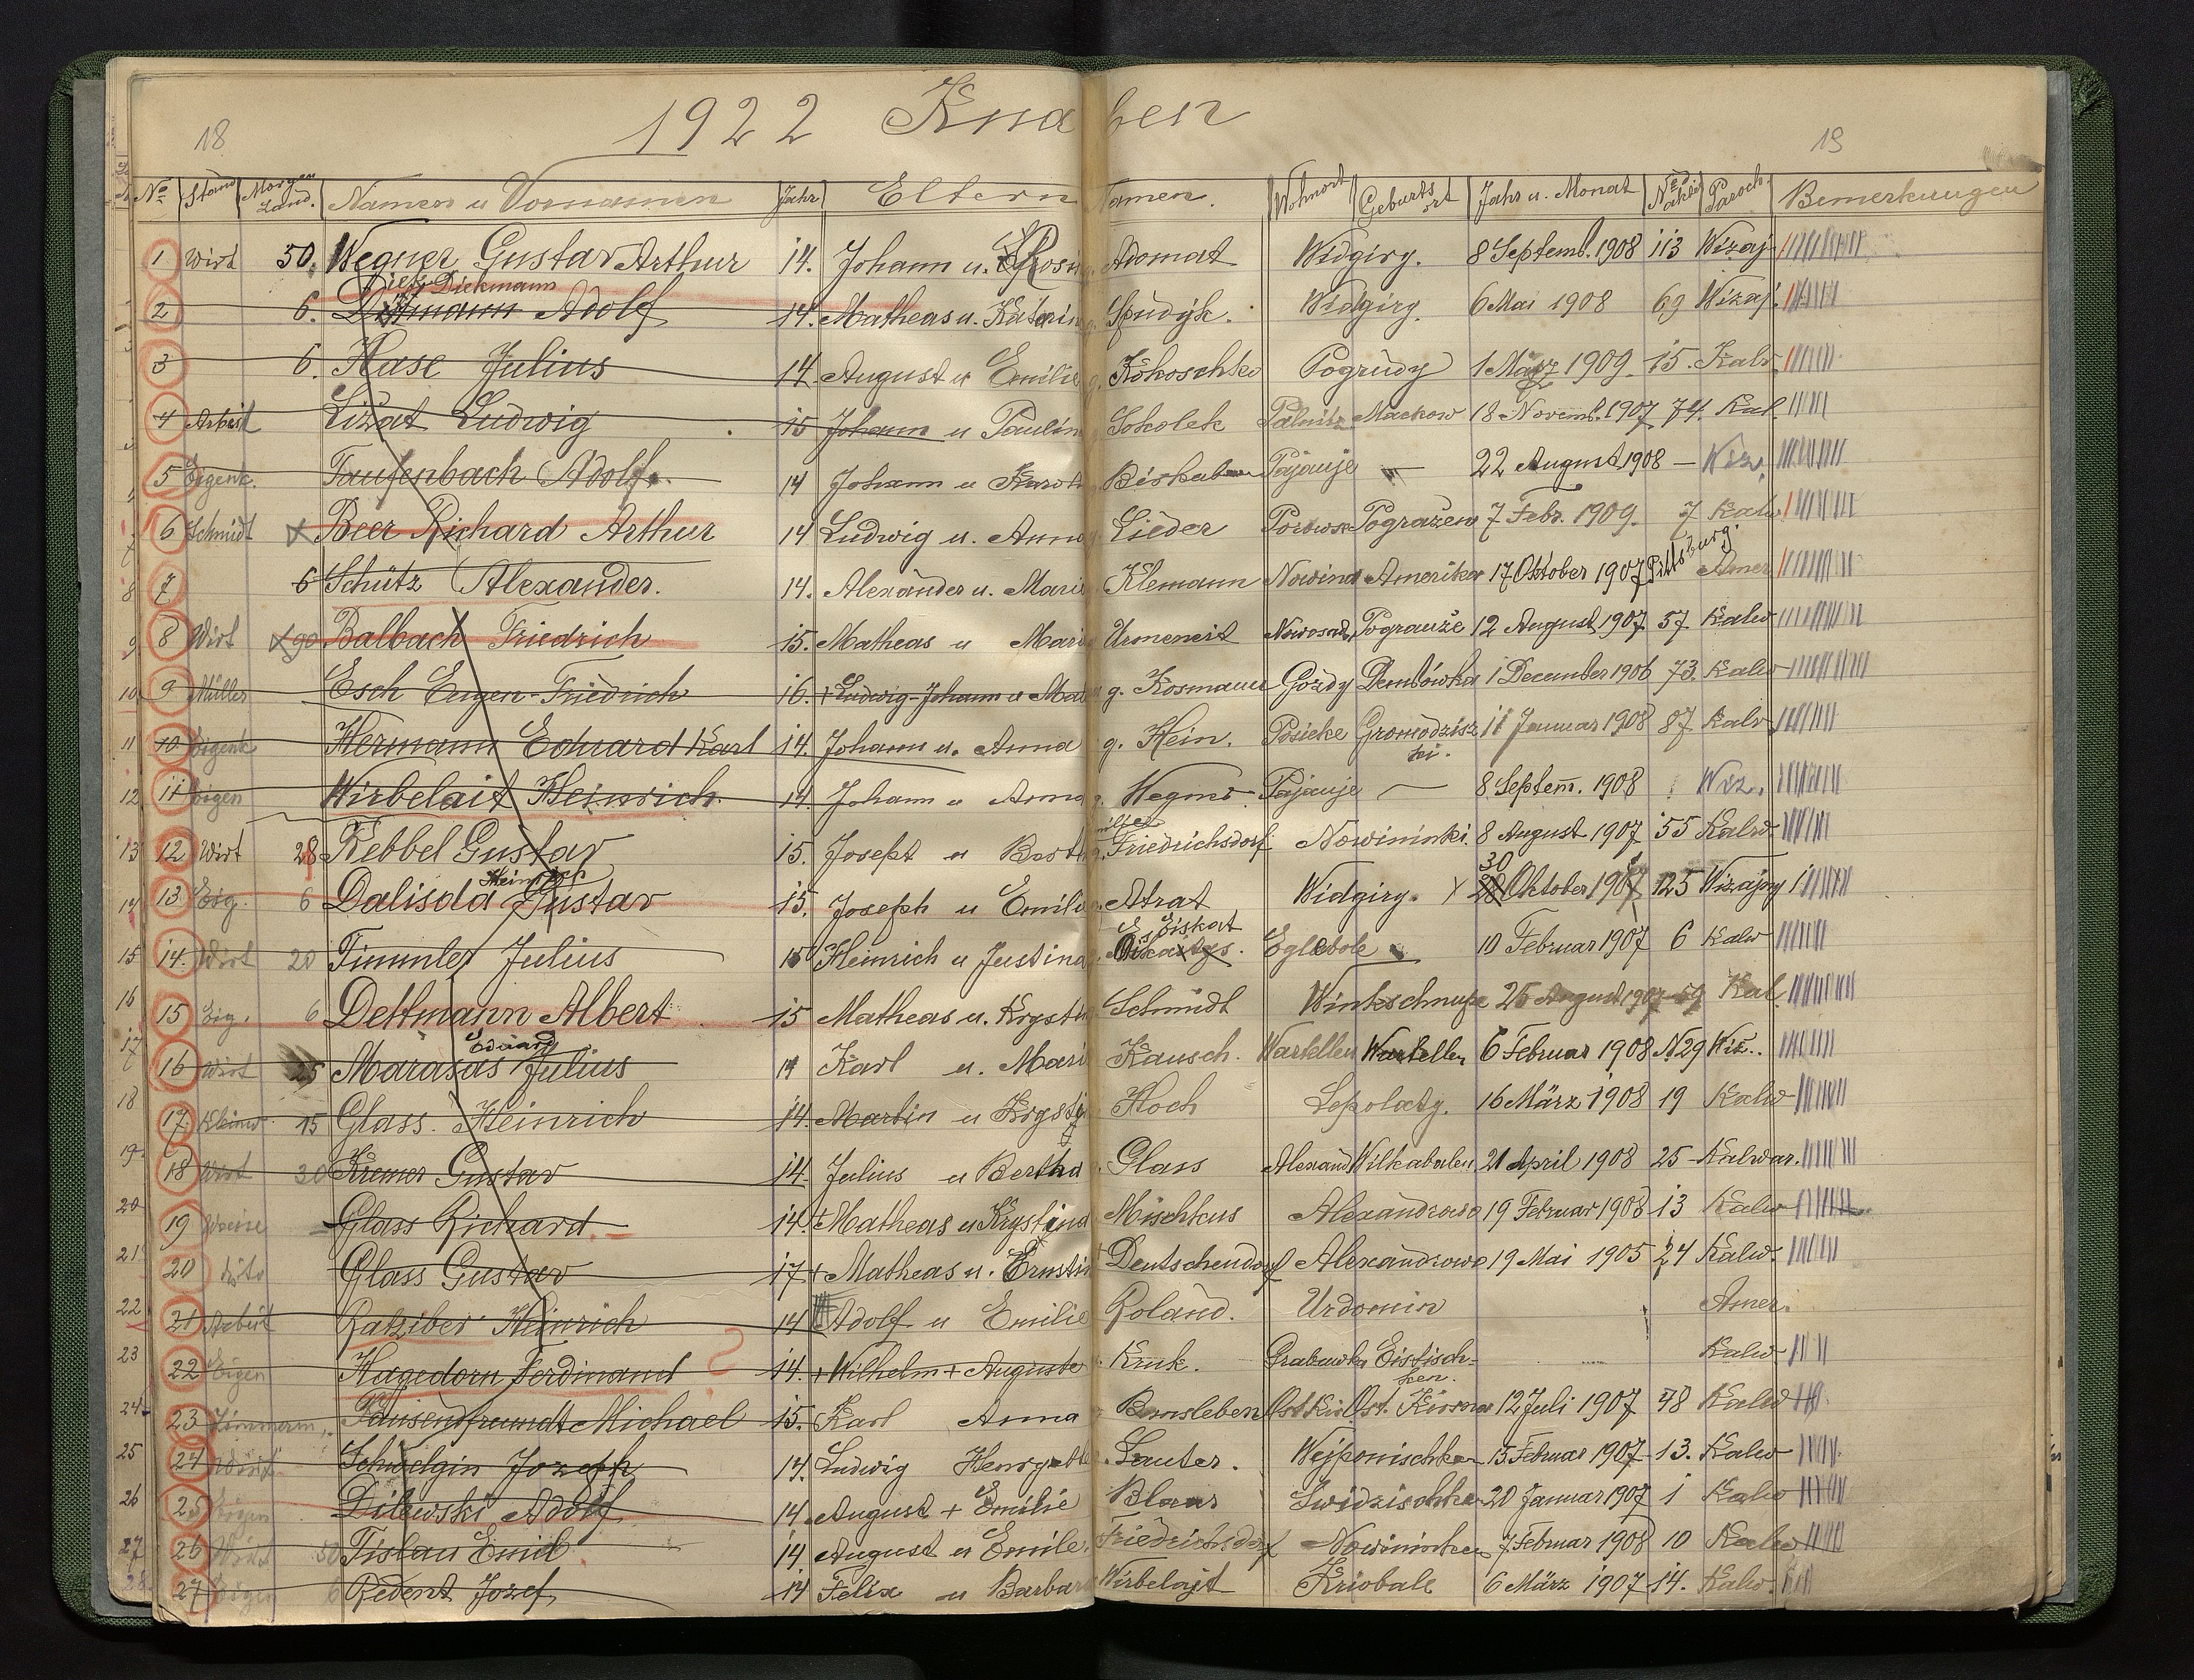 1922 Knaben
18
19
No Stand Morgen Land. Namen u Vornamen Jahr Eltern Namen. Wohnort Geburts ort Jahr u. Monat No Akte Paroch. Bemerkungen
1 Wirt 50. Wegner Gustav Arthur 14. Johann u. Adomat Widgiry. 8 Septemb. 1908 113 Wizaj
Diekmann
2 6. Adolf 14. Matheas u. Katarin Spudyk. Widgiry. 6 Mai 1908 69 Wizaj.
3 6. Hase Julius 14 August u Emilie g. Kokoschko Pogrudy 1 März 1909. 15. Kalv
4 Arbeit Lizat Ludwig 15 Johann u Paulin Sokolek Mackow 18 Novemb. 1907 74. Kal.
5 Eigenk. Taufenbach Adolf. 14 Johann u Pajauje — 22 August 1908 — Wiz.
6 Schmidt Beer Richard Arthur 14 Ludwig u. Anna Lieder Pogražen 7 Febr. 1909. 7 Kalw
7 6 Schütz Alexander. 14. Alexander u. Marie Klemann Nowina Amerika 17 Oktober 1907 Pittsburg. Amer
8 Wirt 90 Balbach Friedrich 15. Matheas u Mari Urmeneit Nowosad Pograuže 12 August 1907 57 Kalw
9 Müller Esch Eugen-Friedrich 16. + Ludwig-Johann u g. Kosmann Gozdy Dembówka 1 December 1906 73. Kalw
10 Eigenk Hermann Eduard Karl 14. Johann u. Anna g. Hein. Posicke Gromodzisz ki. 11 Januar 1908 87 Kalv
11 Eigen Wirbelait Heinrich. 14. Johann u Anna g. Wegner. Pajauje — 8 Septem. 1908 Wiz.
12 Wirt 28 Rebbel Gustav 15. Joseph u Berth Friedrichsdorf Nowininki. 8 August 1907 55 Kalw.
Heinrich
30
13 Eig. 6 Dalisda Gustav 15. Joseph u Emili Atrat Widgiry. 28 Oktober 1907 125 Wizajny
Eiskat
14. Wirt 20 Timmler Julius 15 Heinrich u Justina Eglobole — 10 Februar 1907 6 Kalw
15 Eig. 6 Dettmann Albert 15 Matheas u. Krysti Schmidt Winkschnupe 26 August 1907 59 Kal.
Eduard
16 Wirt 25 Marasas Julius 14 Karl u. Mari Kausch. Wartellen Wartellen 6 Februar 1908 N29 Wiz..
17. Kleinw. 15 Glass. Heinrich 14. Martin u Krysti Hoch Lepolaty. 16 März 1908 19 Kalw
18 Wirt 30 Kremer Gustav 14. Julius u Bertha Glass Alexand Wilkabalen 21 April 1908 25 Kalwar.
19 Waise Glass Richard. 14. + Matheas u Krystina Mischkus Alexandrowo 19 Februar 1908 13 Kalw
20 dito Glass Gustav 17. + Matheas u. Ernstin Deutschendorf Alexandrowo 19 Mai 1905 24 Kalw.
21 Arbeit Ratziber Heinrich 14 Adolf u Emilie Roland. Urdomin Amer.
22 Eigen Hagedorn Ferdinand ? 14. + Wilhelm + Auguste Kruk. Grabauka Eistisch- ken. Kalw
23 Zimmerm. Tausendfreundt Michael 15. Karl Anna Bensleben 12 Juli 1907 48 Kalw
24 Wirt Schudgin Jozeph 14. Ludwig Lauter. Wejponischken 15 Februar 1907 13. Kalw
25 Dilewski Adolf 14 August + Emilie 20 Januar 1907 1 Kalw
26 Wirt 50 Tislau Emil 14 August u Emile. Friedrichsdorf 7 Februar 1908 10 Kalw
27 6 Redent Jozef 14 Felix u Barbar Wirbelajt Kriobale 6 März 1907 14. Kalw.